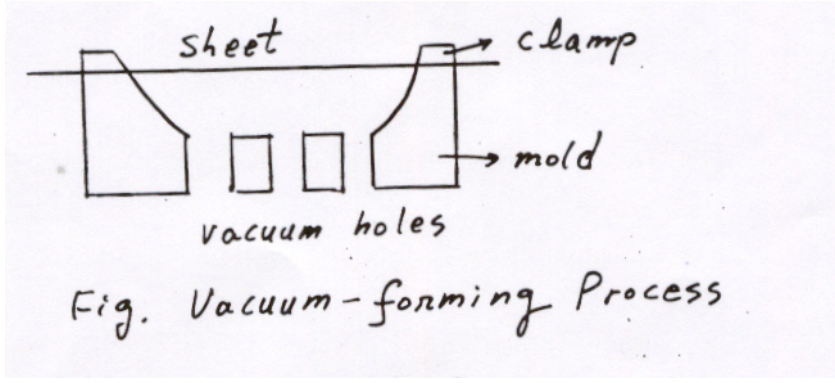 sheet
clamp
mold
vacuum holes
Fig. Vacuum-forming Process